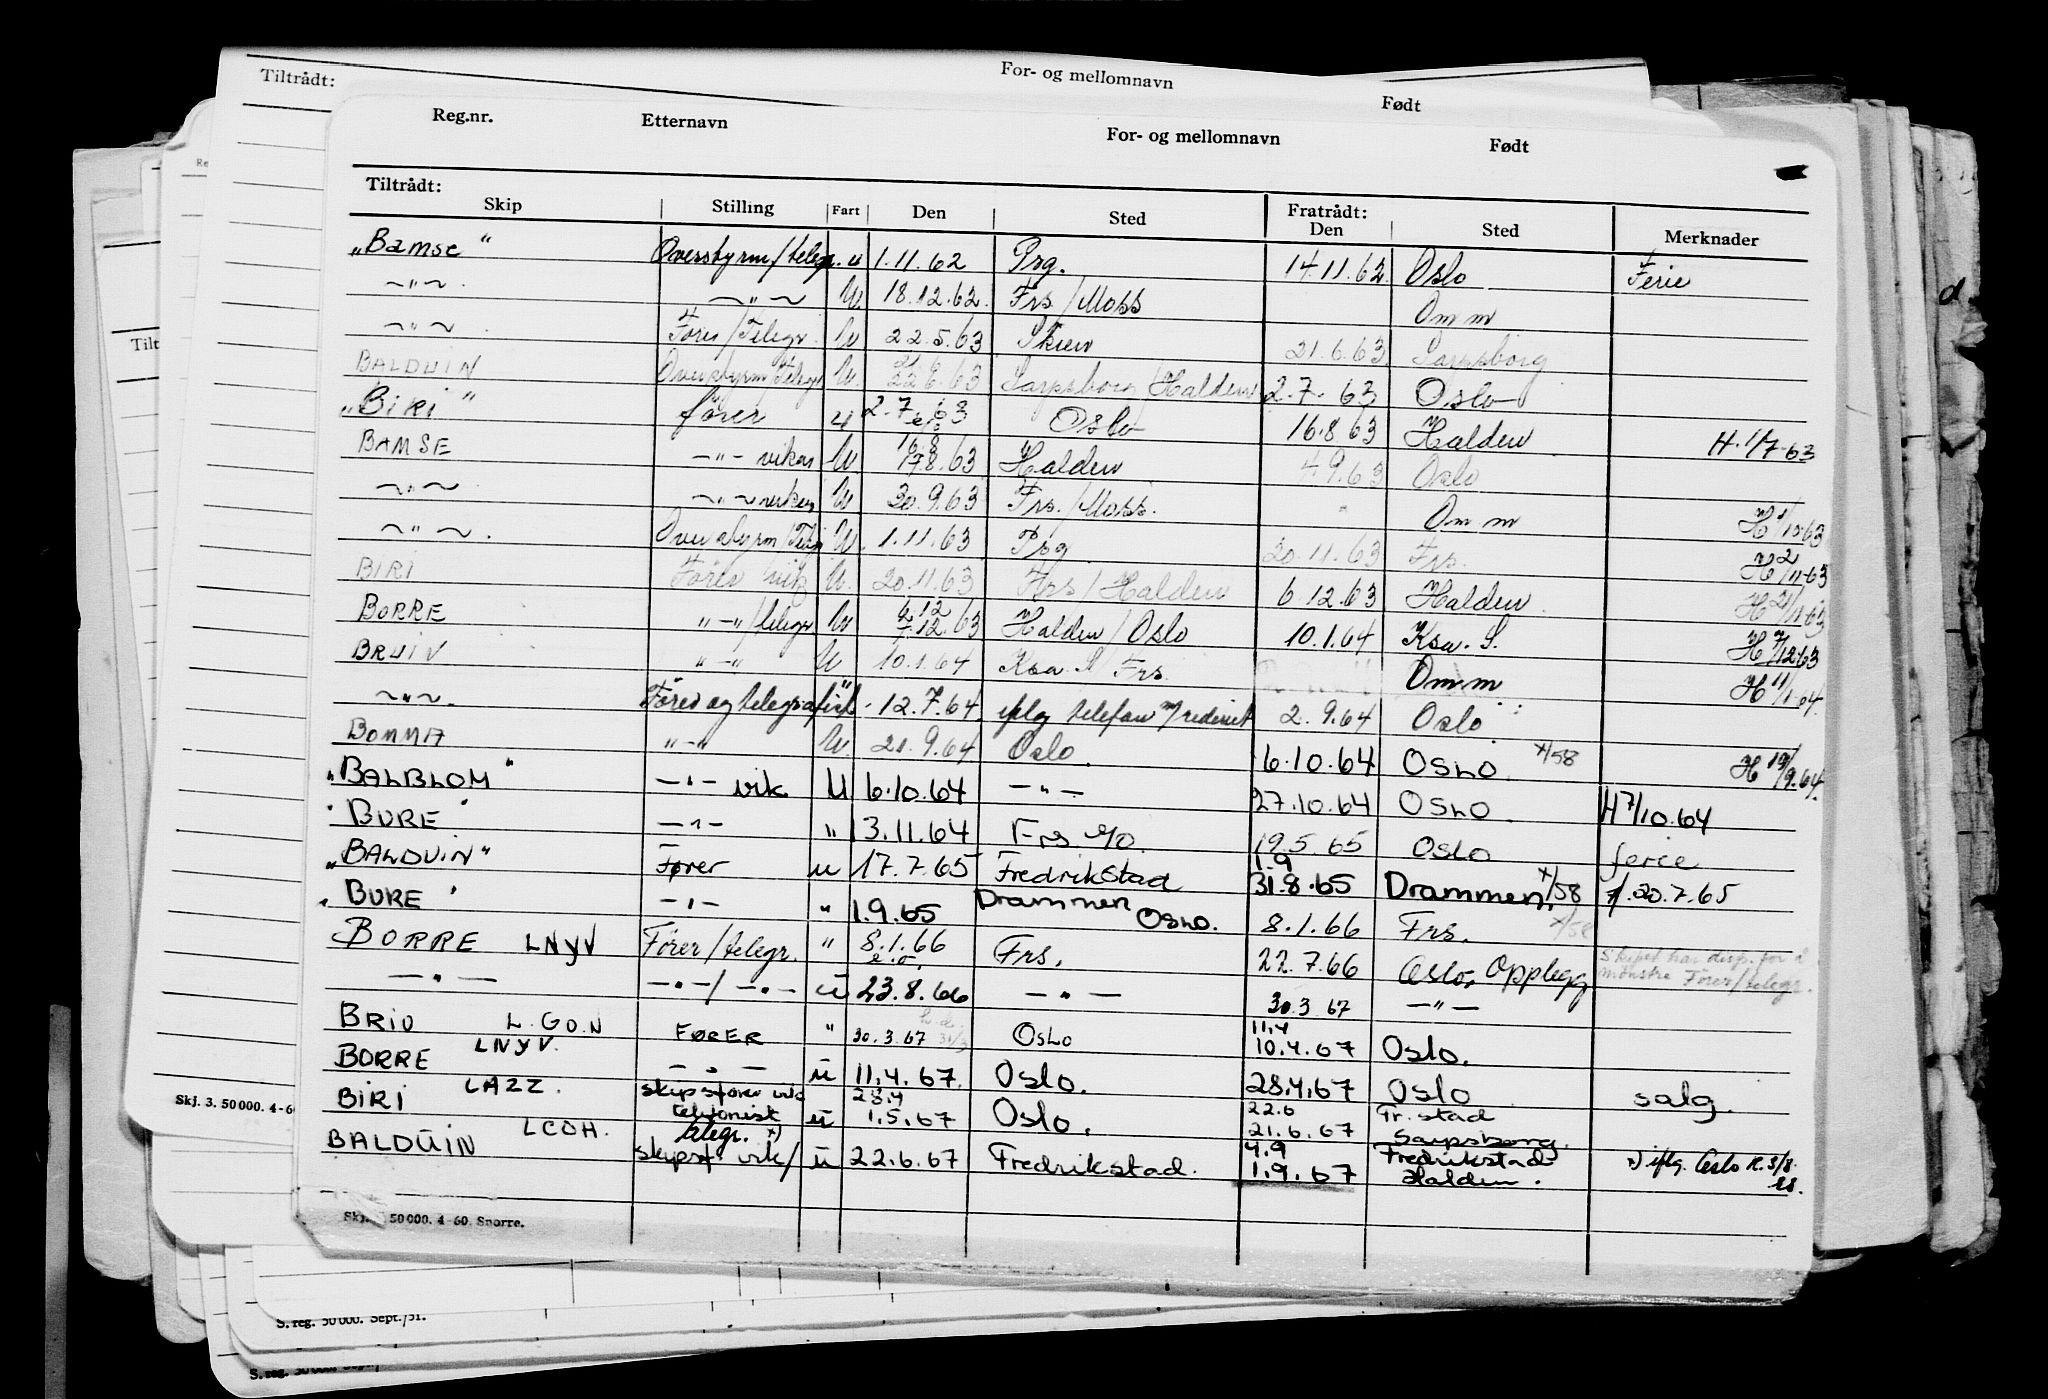 For- og mellomnavn
Tiltrådt:
Født
Reg.nr. Etternavn For- og mellomnavn Født
Tiltrådt: Fratrådt:
Skip Stilling Fart Den Sted Den Sted Merknader
"Bamse" Overstyrm/telegr. u 1.11.62 Prg. 14.11.62 Oslo Ferie
-"- -"- U. 18.12.62. Frs./Moss Omm
-"- Fører/Telegr. U 22.5.63 Skien 21.6.63 Sarpsborg
BALDUIN Overstyrm/Telegr U. 22.6.63 Sarpsborg/Halden 2.7.63 Oslo
"Biri" fører u 2.7.63 Oslo 16.8.63 Halden H. 1/7-63
BAMSE -"- vikar U. 16.8 17.8.63 Halden 4.9.63 Oslo
-"- -"- U 30.9.63 Frs./Moss. Omm H 1/10 63
-"-. Overstyrm/Telegr U. 1.11.63 Prg 20.11.63 Frs. H 2/11-63
BIRI Fører vik U. 20.11.63 Frs/Halden 6.12.63 Halden. H 21/11.63
BORRE "-"/telegr U 6.12 7.12.63 Halden/Oslo 10.1.64 Ksu. S. H 7/12 63
BRUIN "-" U 10.1.64 Ksu. S Frs. Omm H 11/1-64.
-"-. Fører og telegrafist 12.7.64. iflg telefon m/rederiet 2.9.64 Oslo
BOMMA "-" U 21.9.64 Oslo. 6.10.64 OSLO. x/58 H 19/9.64.
"BALBLOM" -"- vik U 6.10.64 -"- 27.10.64 OSLO. H 7/10.64
"BURE" -"- " 3.11.64 Frs 19.5.65 Oslo ferie
"BALDUIN" Fører u 17.7.65 Fredrikstad 1.9 31.8.65 Drammen. x/58 20.7.65
"BURE" -"- " 1.9.65 Drammen OSLO. 8.1.66 Frs. x/58
BORRE LNYV Fører/telegr. " 8.1.66 e.o. Frs. 22.7.66 Oslo, Opplegg Skipet har disp. for å mønstre Fører/telegr.
-"- -"-/-"- u 23.8.66 -"- 30.3.67 -"-
BRIO L.GO.N FØRER " 30.3.67 31/3 OSLO 11.4 10.4.67 Oslo.
BORRE LNYV. -"- u 11.4.67. Oslo. 28.4.67 Oslo salg.
BIRI LAZZ. skipsfører vik telefonist u 28.4 1.5.67 Oslo. 22.6 21.6.67 Fr.stad Sarpsborg.
BALDUIN LCOH. telegr. x) skipsf. vik/ u 22.6.67 Fredrikstad. 4.9 1.9.67 Fredrikstad Halden. x) iflg. Oslo R. 3/8.
Skj. 3. 50 000. 4-60
Skj. 50 000. 4-60. Snorre.
S. reg. 50 000. Sept./51.